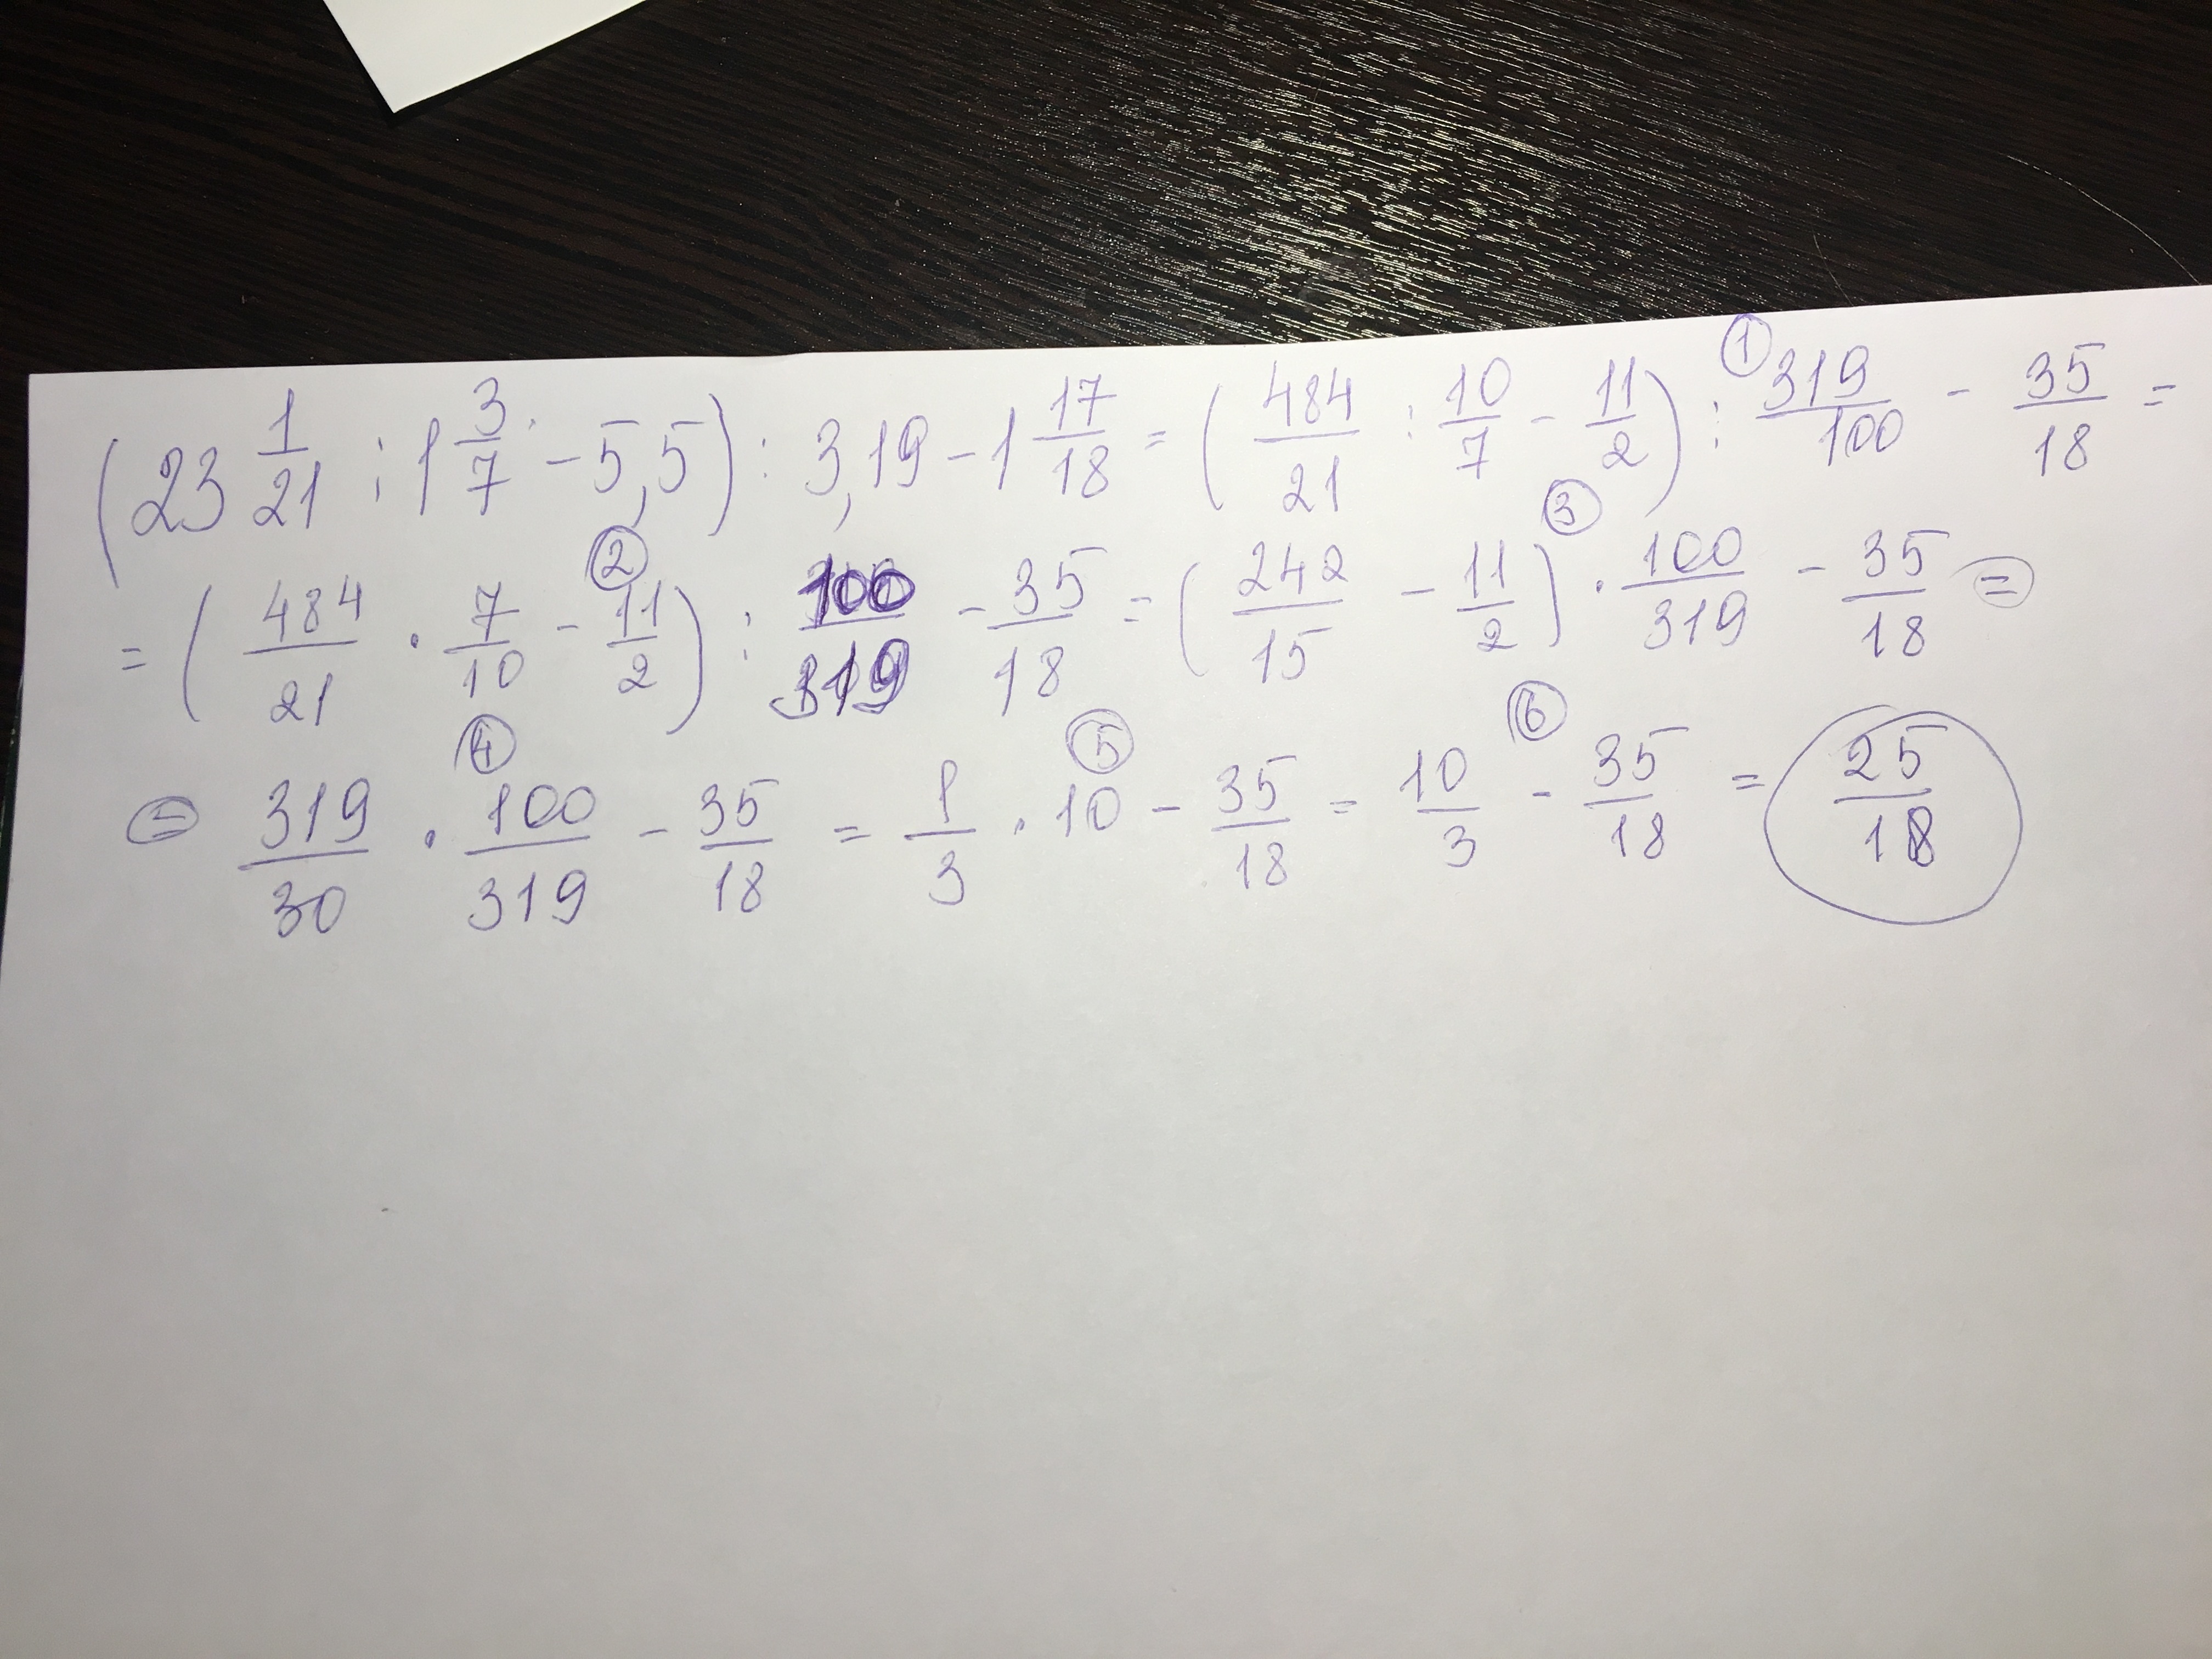 (23 1/21 : 1 3/7 - 5,5) : 3,19 - 1 17/18 = (484/21 : 10/7 - 11/2) : ① 319/100 - 35/18 =
= (484/21 · 7/10 - ② 11/2) : 100/319 - 35/18 = (242/15 - 11/2) ③ · 100/319 - 35/18 =
= 319/30 · ④ 100/319 - 35/18 = 1/3 · 10 ⑤ - 35/18 = 10/3 - ⑥ 35/18 = 25/18